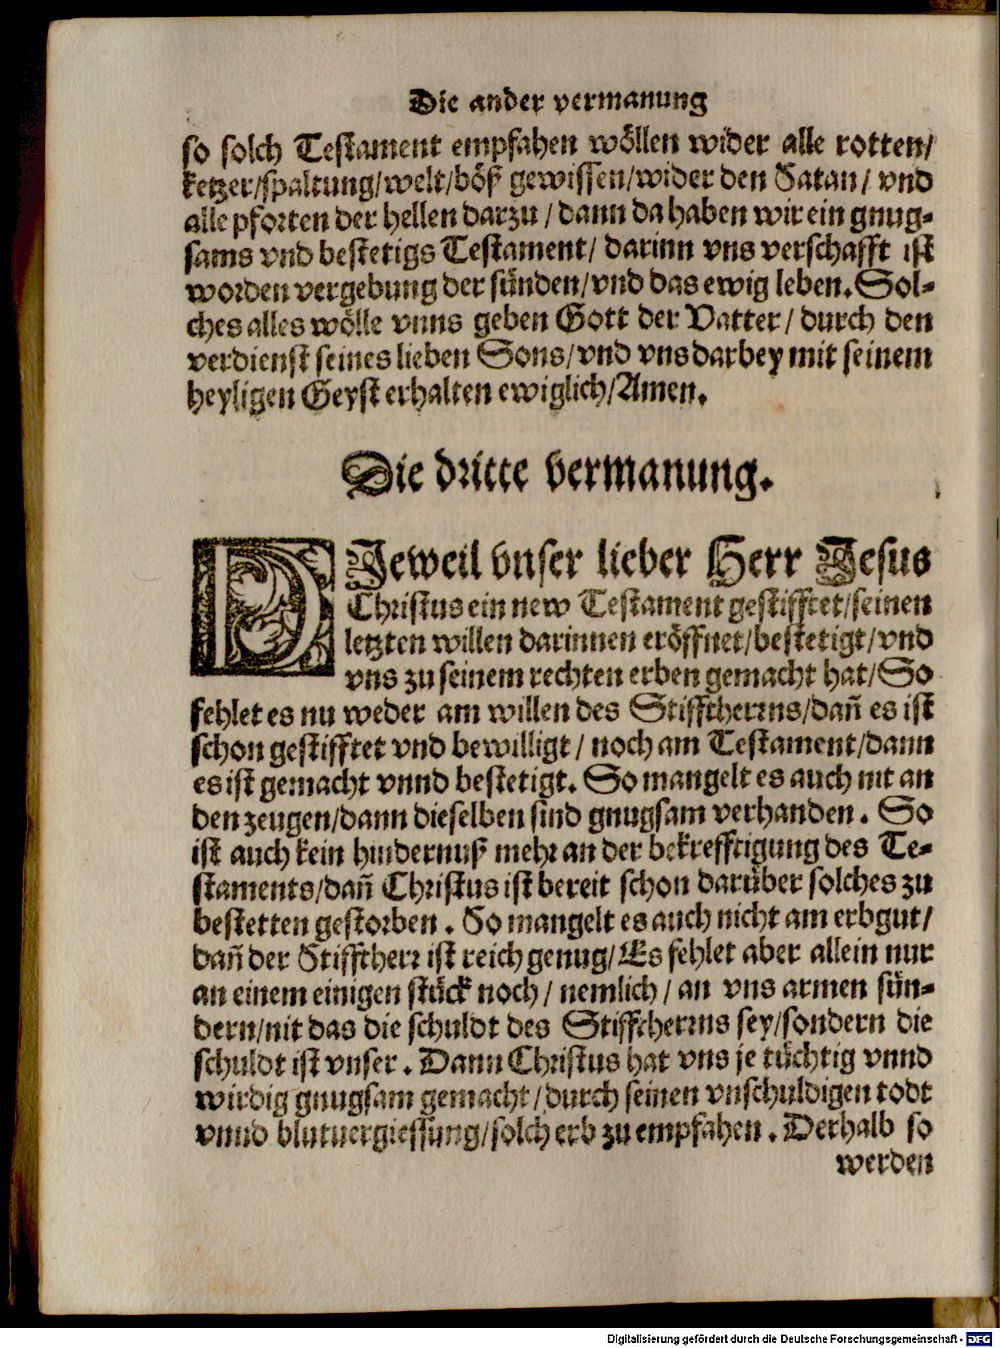 Die ander vermanung
so solch Testament empfahen wöllen wider alle rotten/
ketzer/spaltung/welt/böß gewissen/wider den Satan/ vnd
alle pforten der hellen darzu / dann da haben wir ein gnug-
sams vnd bestetigs Testament/ darinn vns verschafft ist
worden vergebung der sünden/vnd das ewig leben. Sol-
ches alles wölle vnns geben Gott der Vatter / durch den
verdienst seines lieben Sons/vnd vns darbey mit seinem
heyligen Geyst erhalten ewiglich/Amen.
Die dritte vermanung.
DIeweil vnser lieber Herr Jesus
Christus ein new Testament gestifftet/seinen
letzten willen darinnen eröffnet/bestetigt/vnd
vns zu seinem rechten erben gemacht hat/So
fehlet es nu weder am willen des Stifftherrns/dañ es ist
schon gestifftet vnd bewilligt / noch am Testament/dann
es ist gemacht vnnd bestetigt. So mangelt es auch nit an
den zeugen/dann dieselben sind gnugsam verhanden. So
ist auch kein hindernuß mehr an der bekrefftigung des Te-
staments/dañ Christus ist bereit schon darüber solches zu
bestetten gestorben. So mangelt es auch nicht am erbgut/
dañ der Stifftherr ist reich genug/Es fehlet aber allein nur
an einem einigen stück noch / nemlich / an vns armen sün-
dern/nit das die schuldt des Stifftherrns sey/sondern die
schuldt ist vnser. Dann Christus hat vns je tüchtig vnnd
wirdig gnugsam gemacht/durch seinen vnschuldigen todt
vnnd blutuergiessung/solch erb zu empfahen. Derhalb so
werden
Digitalisierung gefördert durch die Deutsche Forschungsgemeinschaft - DFG